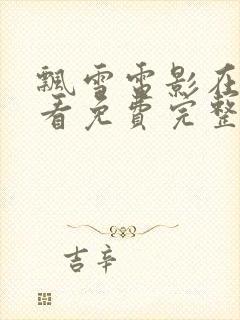 飘雪雷影在
看免费完整
吉辛